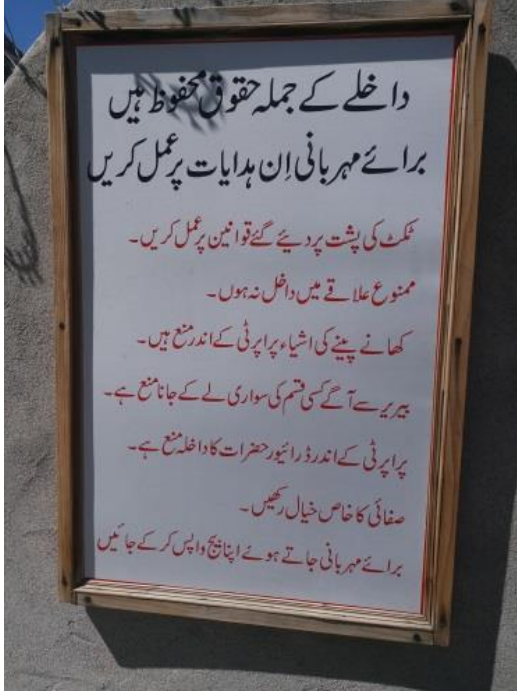 داخلے کے جملہ حقوق محفوظ ہیں
برائے مہربانی اِن ہدایات پر عمل کریں
ٹکٹ کی پشت پر دیئے گئے قوانین پر عمل کریں۔
ممنوع علاقے میں داخل نہ ہوں۔
کھانے پینے کی اشیاء پراپرٹی کے اندر منع ہیں۔
بیریر سے آگے کسی قسم کی سواری لے کے جانا منع ہے۔
پراپرٹی کے اندر ڈرائیور حضرات کا داخلہ منع ہے۔
صفائی کا خاص خیال رکھیں۔
برائے مہربانی جاتے ہوئے اپنا بیج واپس کر کے جائیں